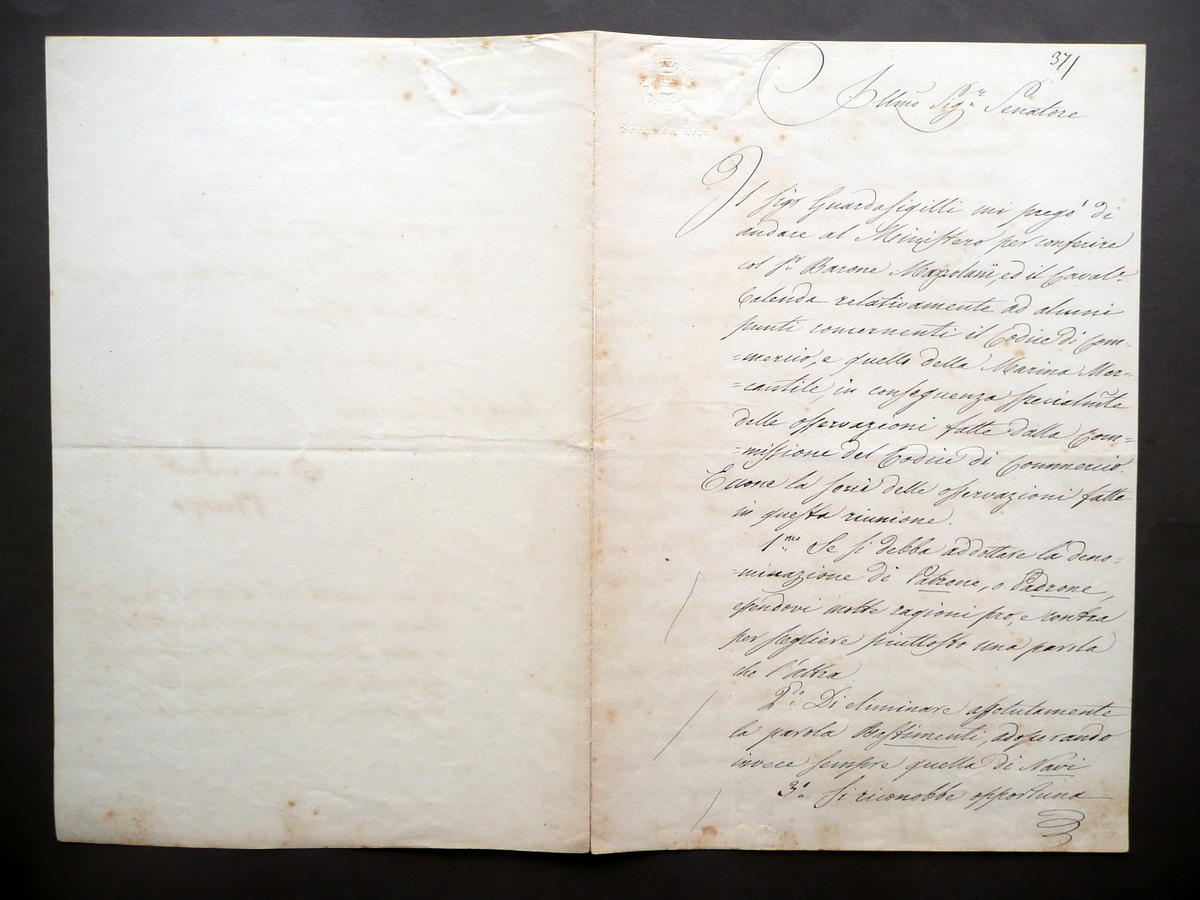 371
Illmo Sigr. Senatore
Senato del Regno
Il Sigr Guardasigilli mi pregò di
andare al Ministero per conferire
col Sr. Barone ed il Caval.e
Calenda relativamente ad alcuni
punti concernenti il Codice di Com-
=mercio, e quello della Marina Mer-
=cantile, in conseguenza specialmte
delle osservazioni fatte dalla Com=
=missione del Codice di Commercio.
Eccone la serie delle osservazioni fatte
in questa riunione.
1.mo Se si debba addottare la deno=
=minazione di Patrone, o Padrone,
essendovi molte ragioni pro, e contra
per scegliere piuttosto una parola
che l'altra
2.do Di eliminare assolutamente
la parola Bastimenti, adoperando
invece sempre quella di Navi
3.o Si riconobbe opportuna